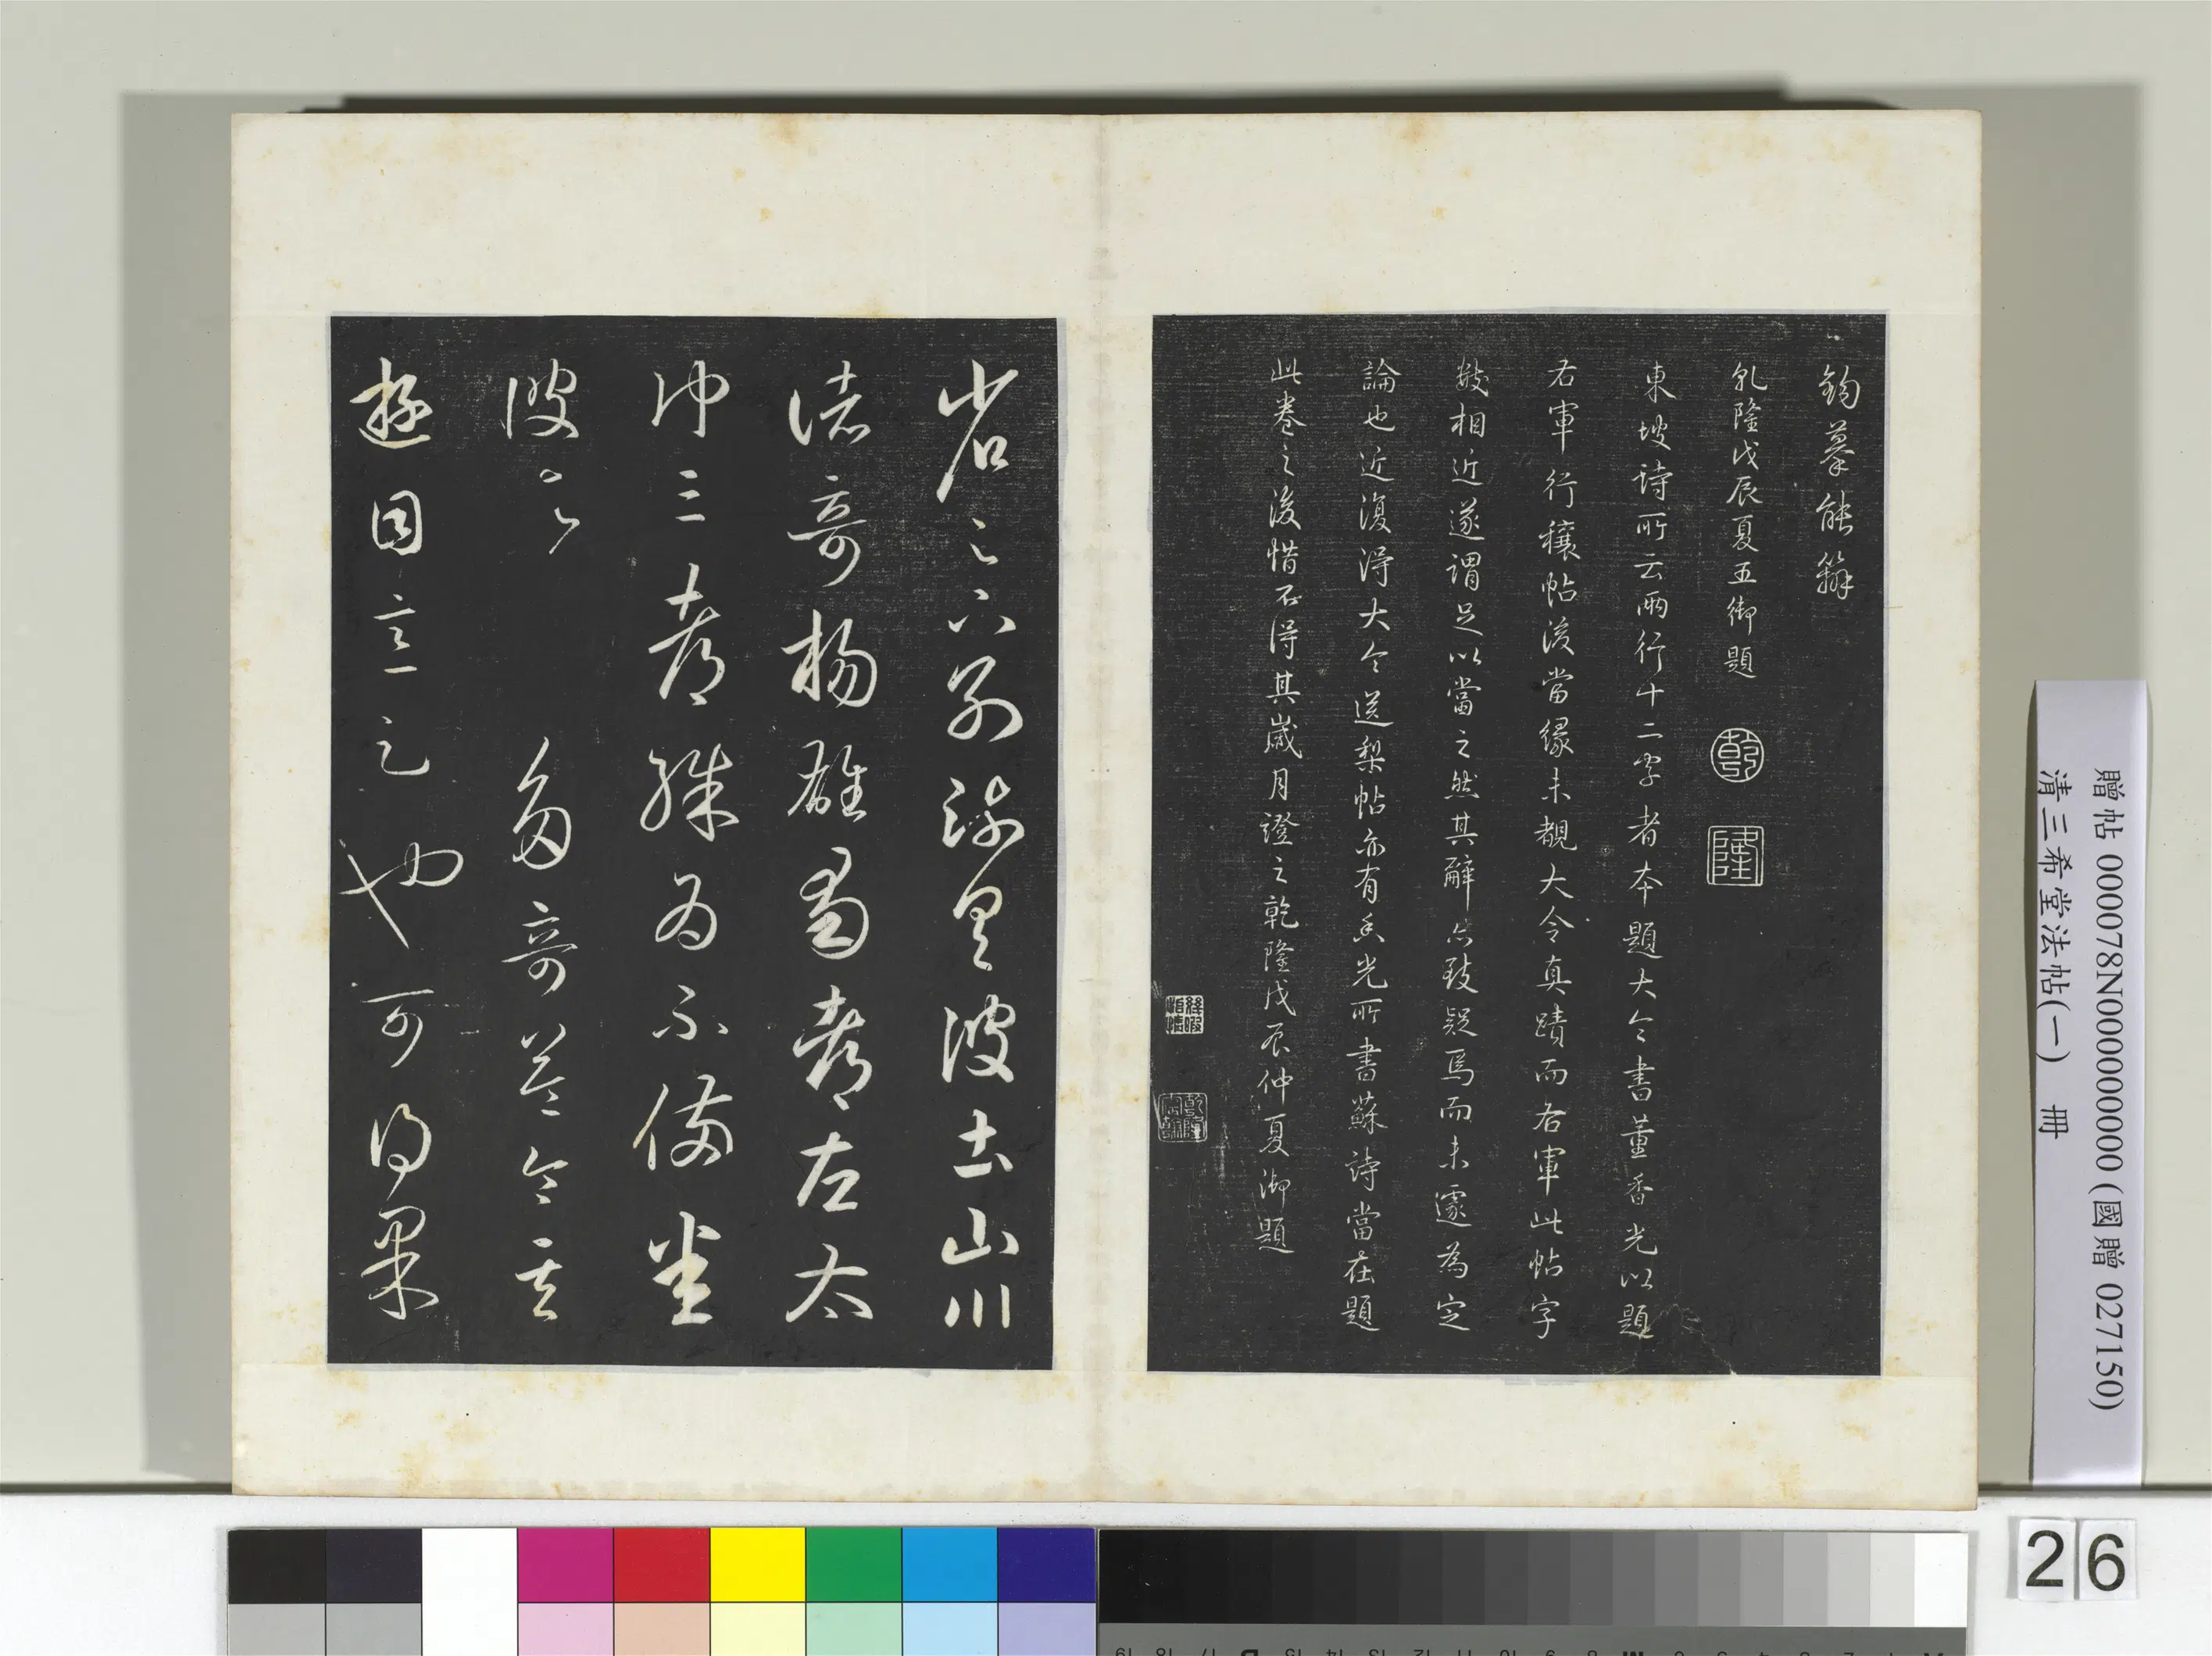 鉤摹能辦
乾隆戊辰夏五御題
乾
隆
東坡詩所云兩行十二字者本題大令書董香光以題
右軍行穰帖後當緣未覩大令真蹟而右軍此帖字
數相近遂謂足以當之然其辭亦致疑焉而未遽為定
論也近復得大令送梨帖亦有香光所書蘇詩當在題
此卷之後惜不得其歲月證之乾隆戊辰仲夏御題
乾隆宸翰
省足下別疏具彼土山川
諸奇楊雄蜀都左太
沖三都殊為不備悉
彼故多奇益令其
遊目意足也可得果
贈帖 000078N000000000 (國贈 027150)
清三希堂法帖(一) 冊
26